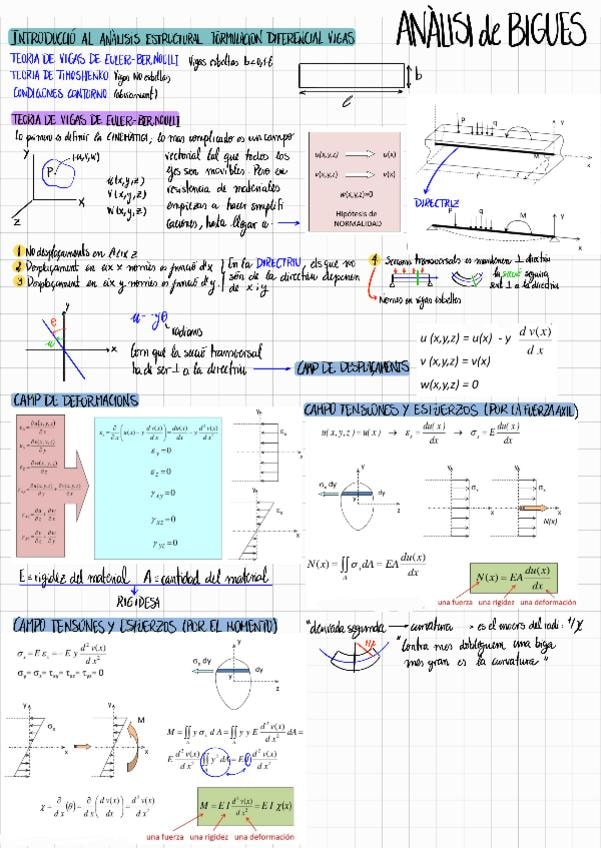 ANÀLISI de BIGUES
INTRODUCCIÓ AL ANÀLISIS ESTRUCTURAL FORMULACION DIFERENCIAL VIGAS
TEORIA DE VIGAS DE EULER-BERNOULLI Vigas esbeltas
TEORIA DE TIMOSHENKO Vigas NO esbeltas
CONDICIONES CONTORNO
b
l
TEORIA DE VIGAS DE EULER-BERNOULLI
lo primero es definir la CINEMÁTICA, lo mas complicado es un campo
vectorial tal que todos los
ejes son movibles. Pero en
resistencia de materiales
empiezan a hacer simplifi
caciones, hasta llegar a
Y
P
(u,v,w)
X
Z
u(x,y,z)
v(x,y,z)
w(x,y,z)
u(x,y,z) u(x)
v(x,y,z) v(x)
w(x,y,z)=0
Hipótesis de
NORMALIDAD
P q M Y X
DIRECTRIZ
P q M Y X
1 No desplaçaments en A eix z
2 Desplaçament en eix x només es funció de x
3 Desplaçament en eix y només es funció de y
En la DIRECTRIU, els que no
són de la directriu depenen
de x i y
4 Seccions transversals es mantenen ⊥ directriu
la secció seguirà
sent ⊥ a la directriu
Només en vigas esbeltas
y
θ
u
x
u = -yθ
radians
Com que la secció transversal
ha de ser ⊥ a la directriu
CAMP DE DESPLAÇAMENTS
u (x,y,z) = u(x) - y d v(x) / d x
v (x,y,z) = v(x)
w(x,y,z) = 0
CAMP DE DEFORMACIONS
εy=0
εz=0
γxy=0
γxz=0
γyz=0
E = rigidez del material A = cantidad del material
RIGIDESA
CAMPO TENSIONES Y ESFUERZOS (POR LA FUERZA AXIL)
u(x,y,z)=u(x) → εx = du(x)/dx → σx = E du(x)/dx
σx dy
σx
N(x)
N(x) = ∬A σx dA = EA du(x)/dx
N(x) = EA du(x)/dx
una fuerza una rigidez una deformación
CAMPO TENSIONES Y ESFUERZOS (POR EL MOMENTO)
σx = E εx = - E y d² v(x) / d x²
σy= σz= τxy= τxz= τyz= 0
σx dy
dy
σx
M
M = ∬A y σx d A = ∬A y y E d² v(x)/d x² dA =
χ = ∂/∂x (θ) = ∂/∂x (d v(x)/d x) = d² v(x)/d x²
M = E I d² v(x)/d x² = E I χ(x)
una fuerza una rigidez una deformación
"derivada segunda → curvatura → es el invers del radi: 1/χ
"Contra mes dobleguem una biga
mes gran es la curvatura"